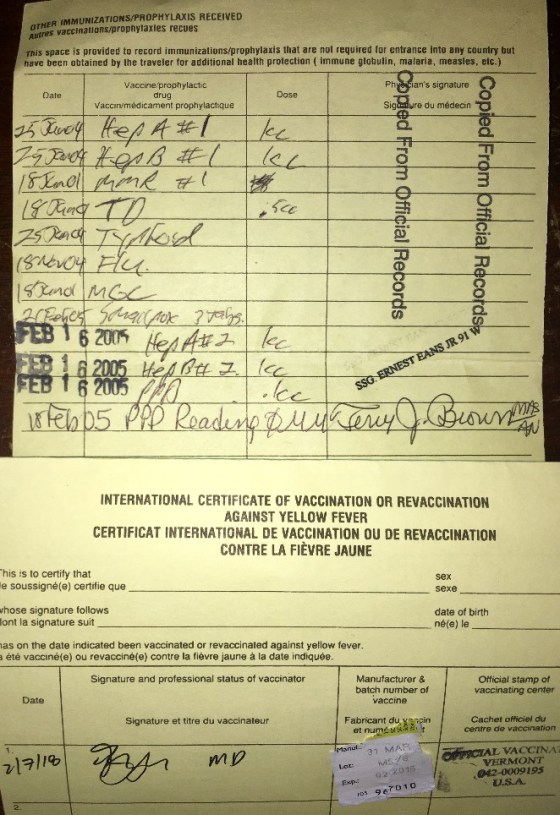 OTHER IMMUNIZATIONS/PROPHYLAXIS RECEIVED
Autres vaccinations/prophylaxies recues
This space is provided to record immunizations/prophylaxis that are not required for entrance into any country but
have been obtained by the traveler for additional health protection ( immune globulin, malaria, measles, etc.)
Date
Vaccine/prophylactic
drug
Vaccin/médicament prophylactique
Dose
Physician's signature
Signature du médecin
Copied From Official Records
Copied From Official Records
Hep A #1 1cc
Hep B #1 1cc
MMR #1
TD .5cc
Typhoid
18 Nov 04 Flu
MGC
Smallpox
FEB 16 2005 Hep A #2 1cc
FEB 16 2005 Hep B # 2 1cc
FEB 16 2005 PPD .1cc
SSG. ERNEST EANS JR 91 W
18 Feb 05 PPD Reading Terry J. Brown
INTERNATIONAL CERTIFICATE OF VACCINATION OR REVACCINATION
AGAINST YELLOW FEVER
CERTIFICAT INTERNATIONAL DE VACCINATION OU DE REVACCINATION
CONTRE LA FIÈVRE JAUNE
This is to certify that
le soussigné(e) certifie que
sex
sexe
whose signature follows
dont la signature suit
date of birth
né(e) le
has on the date indicated been vaccinated or revaccinated against yellow fever.
a été vacciné(e) ou revacciné(e) contre la fièvre jaune à la date indiquée.
Date
Signature and professional status of vaccinator
Signature et titre du vaccinateur
Manufacturer &
batch number of
vaccine
Fabricant du vaccin
Official stamp of
vaccinating center
Cachet officiel du
centre de vaccination
1.
MD
Manuf. 31 MAR
Lot:
Exp.:
OFFICIAL VACCINA
VERMONT
042-0009195
U.S.A.
2.